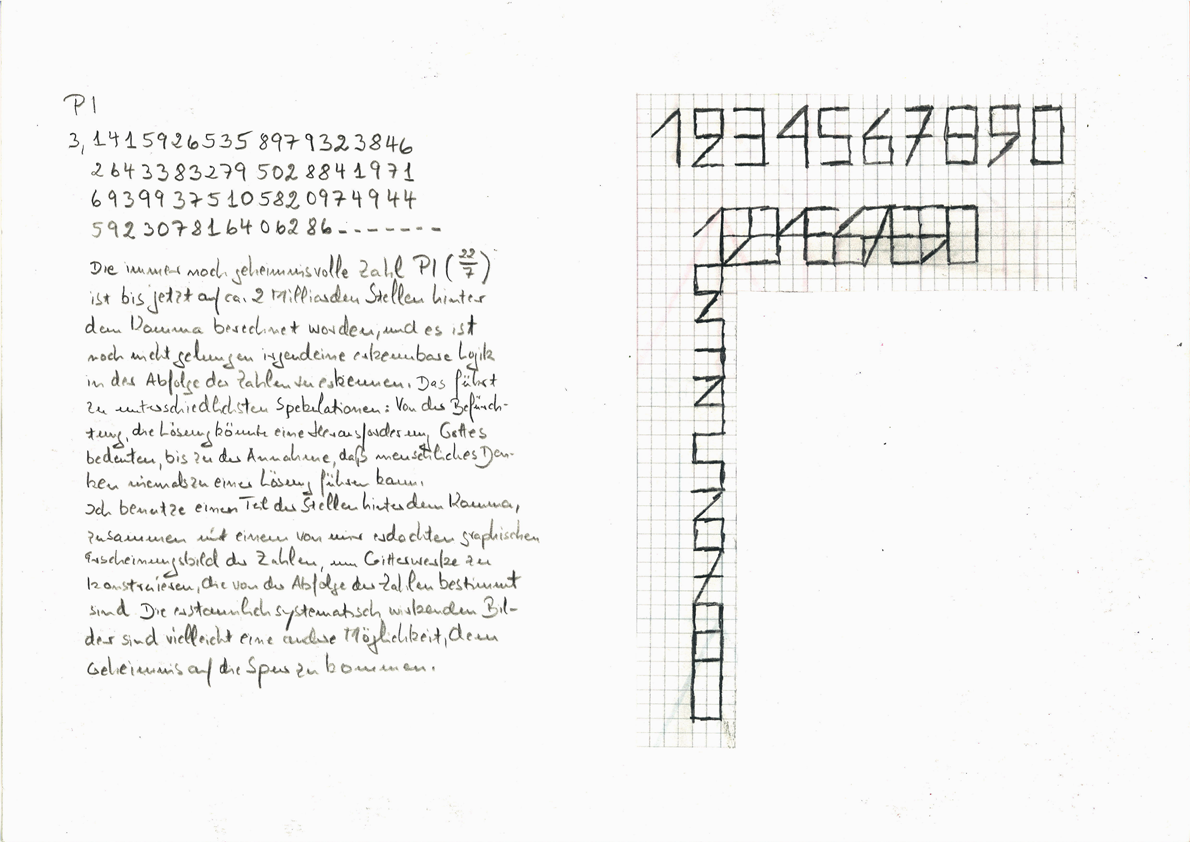 PI
3,1415926535 8979323846
2643383279 5028841971
6939937510 5820974944
592307816406286-------
Die immer noch geheimnisvolle Zahl PI (22/7)
ist bis jetzt auf ca. 2 Milliarden Stellen hinter
dem Komma berechnet worden, und es ist
noch nicht gelungen irgendeine erkennbare Logik
in der Abfolge der Zahlen zu erkennen. Das führt
zu unterschiedlichsten Spekulationen: Von der Befürch-
tung, die Lösung könnte eine Herausforderung Gottes
bedeuten, bis zu der Annahme, daß menschliches Den-
ken niemals zu einer Lösung führen kann.
Ich benutze einen Teil der Stellen hinter dem Komma,
zusammen mit einem von mir erdachten graphischen
Erscheinungsbild der Zahlen, um Gitterwerke zu
konstruieren, die von der Abfolge der Zahlen bestimmt
sind. Die erstaunlich systematisch wirkenden Bil-
der sind vielleicht eine andere Möglichkeit, dem
Geheimnis auf die Spur zu kommen.
1234567890
1234567890